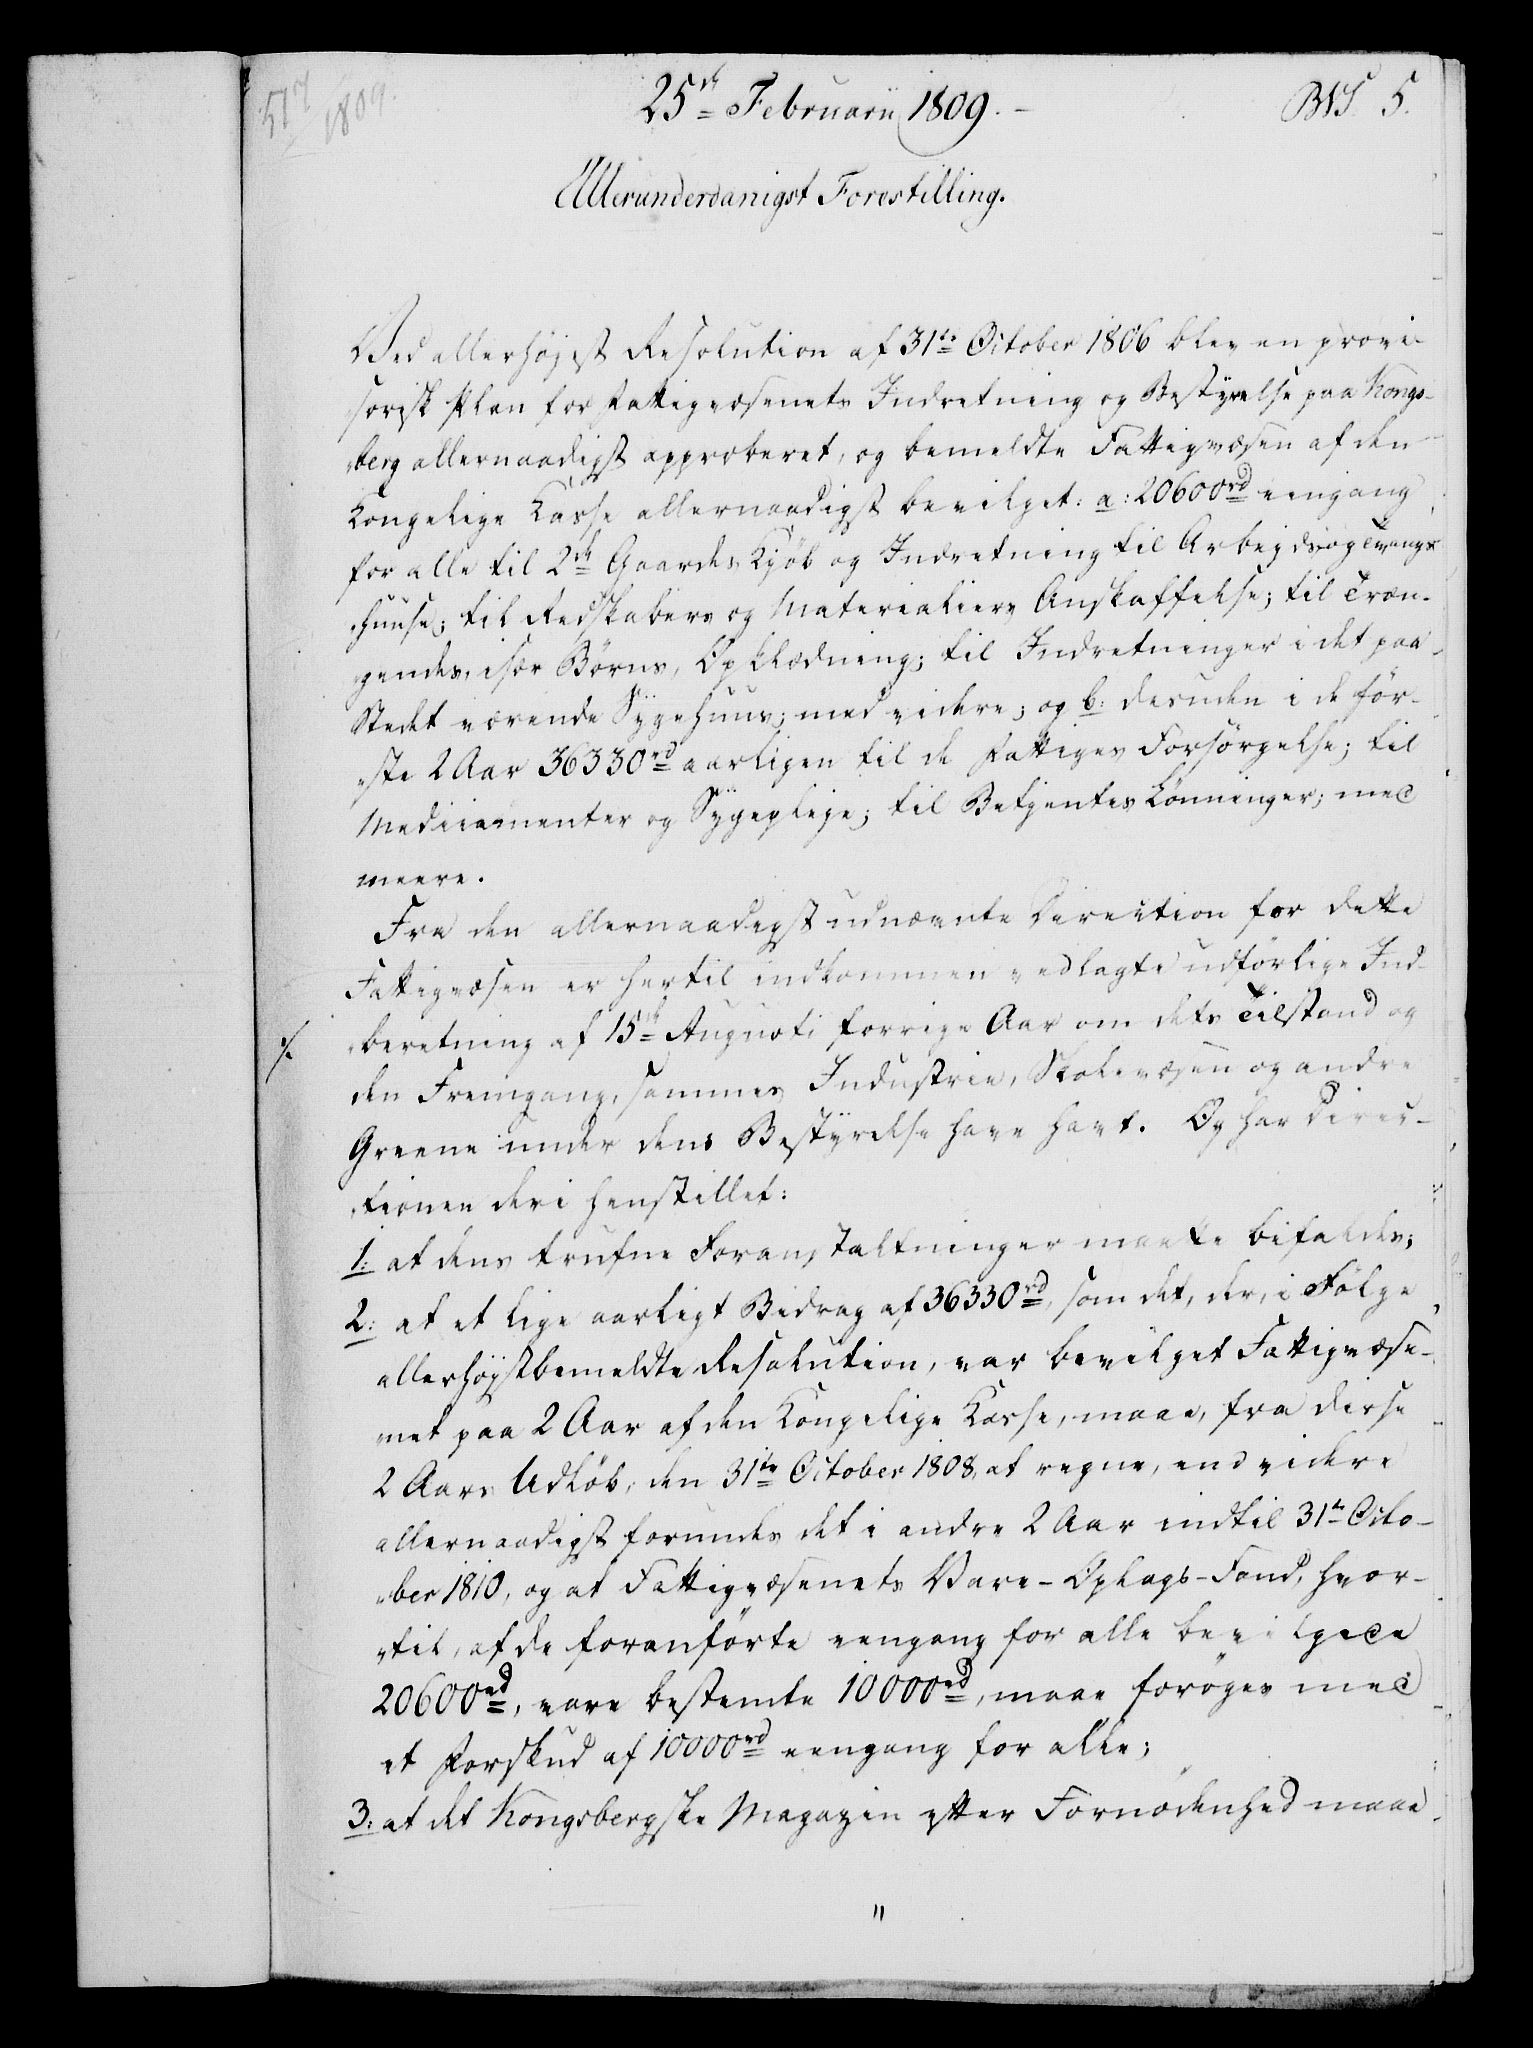 517
1809.
25de Februarii 1809.
BVS. 5.
Allerunderdanigst Forestilling.
Ved allerhöjest Resolution af 31te October 1806 blev en provi-
sorisk Plan for Fattigvæsenets Indretning og Bestyrelse paa Kongs-
berg allernaadigst approberet, og bemeldte Fattigvæsen af den
Kongelige Kasse allernaadigst bevilget: a: 20600rd eengang
for alle til 2de Gaardes Kjöb og Indretning til Arbejds og Tvangs-
huuse; til Redskabers og Materialiers Anskaffelse; til Træn-
gendes, især Börns, Opklædning; til Indretninger i det paa
Stedet værende Sÿgehuus; med videre; og b: desuden i de för-
ste 2 Aar 36330rd aarligen til de Fattiges Forsörgelse; til
Medicamenter og Sÿgepleje; til Betjentes Lönninger; med
meere.
Fra den allernaadigst udnævnte Direction for dette
Fattigvæsen er hertil indkommen vedlagte udförlige Ind-
beretning af 15de Augusti forrige Aar om dets Tilstand og
den Fremgang, sammes Industrie, Skolevæsen og andre
Greene under dens Bestÿrelse have havt. Og har Direc-
tionen deri henstillet:
1: at dens trufne Foranstaltninger maatte bifaldes;
2: at et lige aarligt Bidrag af 36330rd, som det, der, i Fölge
allerhöjstbemeldte Resolution, var bevilget Fattigvæse-
net paa 2 Aar af den Kongelige Kasse, maae, fra disse
2 Aars Udlöb, den 31te October 1808, at regne, end videre
allernaadigst forundes det i andre 2 Aar indtil 31te Octo-
ber 1810, og at Fattigvæsenets Vare-Oplags-Fond, hvor-
til, af de foranförte eengang for alle bevilgede
20600rd, vare bestemte 10000rd, maae foröges med
et Forskud af 10000rd eengang for alle;
3: at det Kongsbergske Magazin efter Fornödenhed maae
"